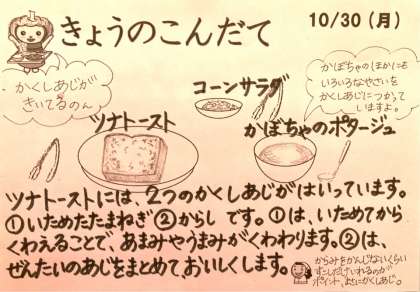 きょうのこんだて
10/30（月）
かくしあじが
きいてるのん
コーンサラダ
かぼちゃのほかにも
いろいろなやさいを
かくしあじにつかって
いますよ。
ツナトースト
かぼちゃのポタージュ
ツナトーストには、2つのかくしあじがはいっています。
①いためたたまねぎ②からし です。①は、いためてから
くわえることで、あまみやうまみがくわわります。②は、
ぜんたいのあじをまとめて、おいしくします。
からみをかんじないくらい
すこしだけいれるのが
ポイント。